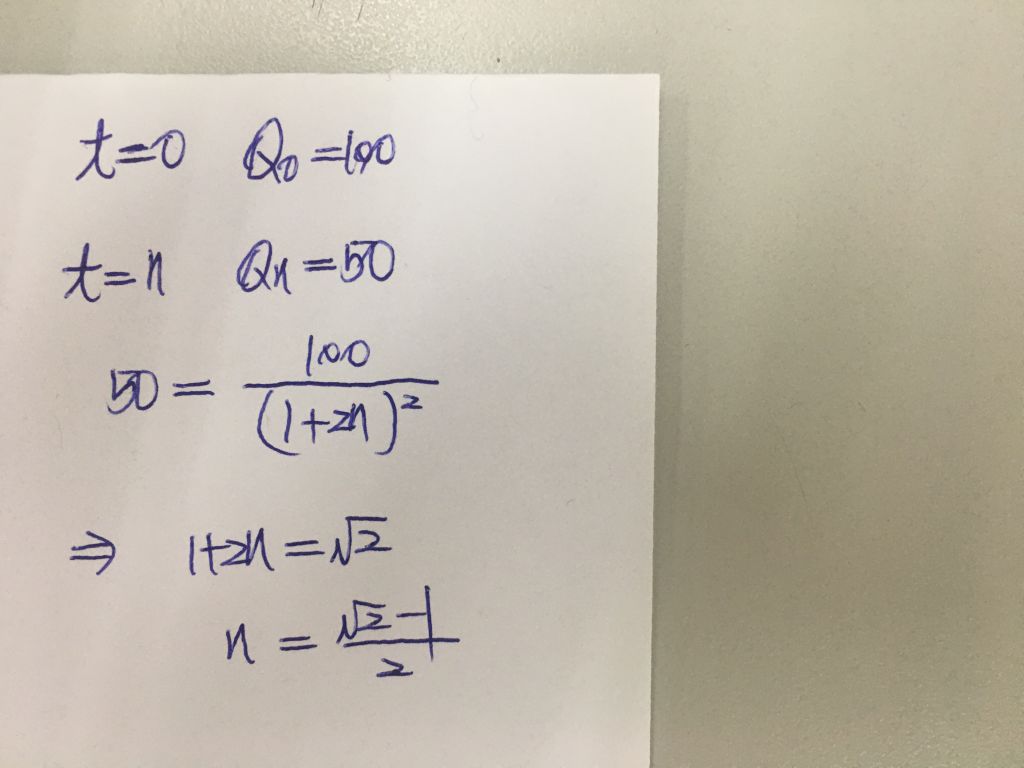 t=0 Q₀=100
t=n Qn=50
50 = 100/(1+2n)²
⇒ 1+2n=√2
n = (√2-1)/2